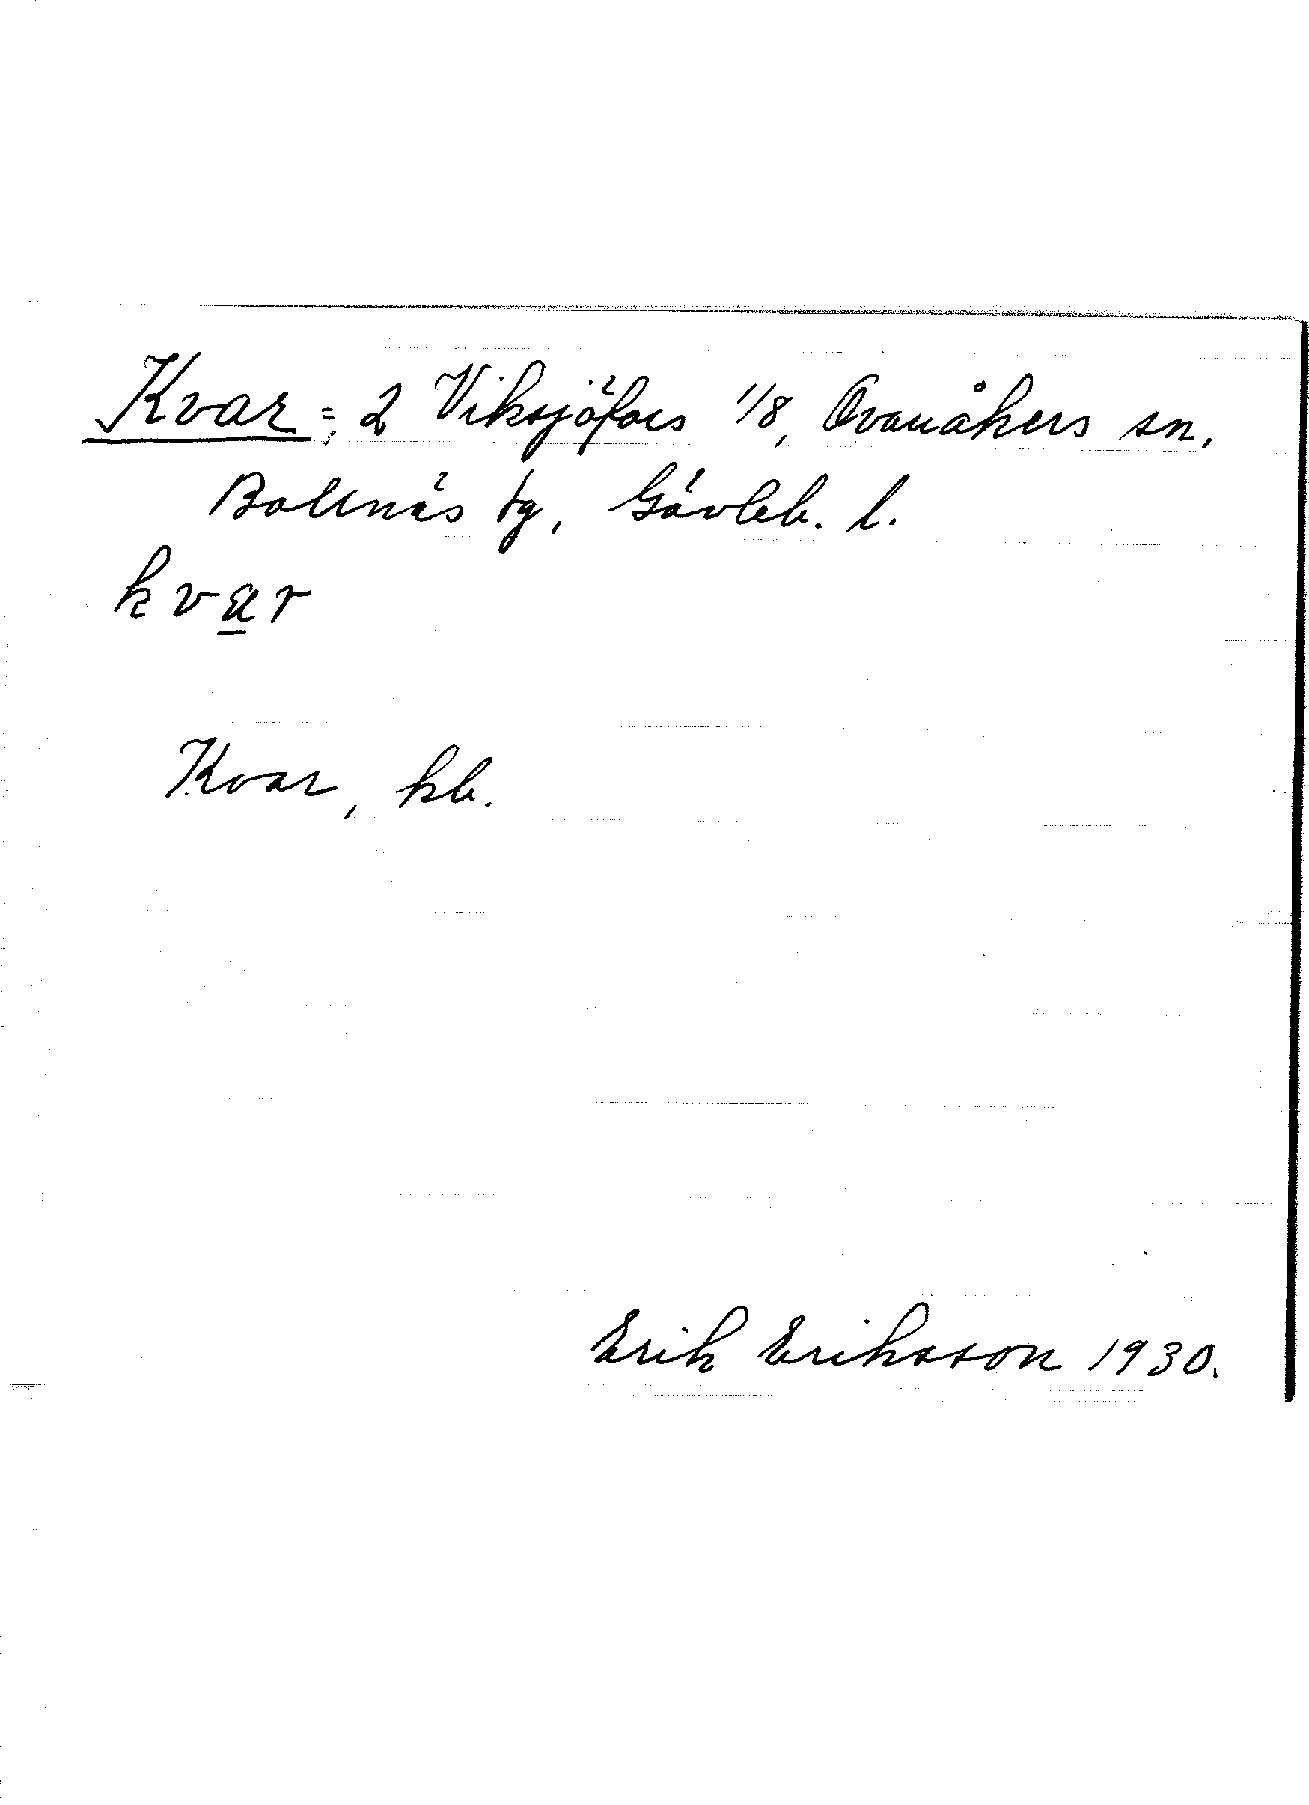 Kvar = 2 Viksjöfors 1/8, Ovanåkers sn,
Bollnäs tg, Gävleb. l.
kvar
Kvar, kb.
Erik Eriksson 1930.